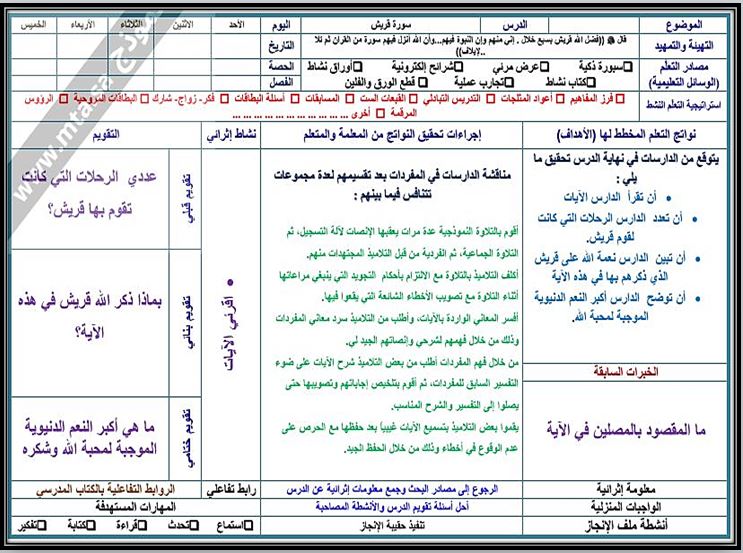 الموضوع
الدرس
سورة قريش
اليوم
الأحد
الاثنين
الثلاثاء
الأربعاء
الخميس
التهيئة والتمهيد
قال ﷺ ((فضل الله قريش بسبع خلال . إني منهم وإن النبوة فيهم...وأن الله أنزل فيهم سورة من القرآن ثم تلا
..لإيلاف))
التاريخ
مصادر التعلم
(الوسائل التعليمية)
سبورة ذكية
عرض مرئي
شرائح إلكترونية
أوراق نشاط
كتاب نشاط
تجارب عملية
قطع الورق والفلين
الحصة
الفصل
استراتيجية التعلم النشط
فرز المفاهيم
أعواد المثلجات
التدريس التبادلي
القبعات الست
المسابقات
أسئلة البطاقات
فكر- زواج- شارك
البطاقات المروحية
الرؤوس
المرقمة
أخرى ... ... ... ... ... ... ... ... ... ...
نواتج التعلم المخطط لها (الأهداف)
إجراءات تحقيق النواتج من المعلمة والمتعلم
نشاط إثرائي
التقويم
يتوقع من الدارسات في نهاية الدرس تحقيق ما
يلي :
أن تقرأ الدارس الآيات
أن تعدد الدارس الرحلات التي كانت
لقوم قريش.
أن تبين الدارس نعمة الله على قريش
الذي ذكرهم بها في هذه الآية
أن توضح الدارس أكبر النعم الدنيوية
الموجبة لمحبة الله.
الخبرات السابقة
ما المقصود بالمصلين في الآية
مناقشة الدارسات في المفردات بعد تقسيمهم لعدة مجموعات
تتنافس فيما بينهم :
أقوم بالتلاوة النموذجية عدة مرات يعقبها الإنصات لآلة التسجيل، ثم
التلاوة الجماعية، ثم الفردية من قبل التلاميذ المجتهدات منهم.
أكلف التلاميذ بالتلاوة مع الالتزام بأحكام التجويد التي ينبغي مراعاتها
أثناء التلاوة مع تصويب الأخطاء الشائعة التي يقعوا فيها.
أفسر المعاني الواردة بالآيات، وأطلب من التلاميذ سرد معاني المفردات
وذلك من خلال فهمهم لشرحي وإنصاتهم الجيد لي.
من خلال فهم المفردات أطلب من بعض التلاميذ شرح الآيات على ضوء
التفسير السابق للمفردات، ثم أقوم بتلخيص إجاباتهم وتصويبها حتى
يصلوا إلى التفسير والشرح المناسب.
يقموا بعض التلاميذ بتسميع الآيات غيبياً بعد حفظها مع الحرص على
عدم الوقوع في أخطاء وذلك من خلال الحفظ الجيد.
اقرئي الآيات
تقويم قبلي
عددي الرحلات التي كانت
تقوم بها قريش؟
تقويم بنائي
بماذا ذكر الله قريش في هذه
الآية؟
تقويم ختامي
ما هي أكبر النعم الدنيوية
الموجبة لمحبة الله وشكره
معلومة إثرائية
الرجوع إلى مصادر البحث وجمع معلومات إثرائية عن الدرس
رابط تفاعلي
الروابط التفاعلية بالكتاب المدرسي
الواجبات المنزلية
أحل أسئلة تقويم الدرس والأنشطة المصاحبة
المهارات المستهدفة
أنشطة ملف الإنجاز
تنفيذ حقيبة الإنجاز
استماع
تحدث
قراءة
كتابة
تفكير
www.mtasa
نموذج